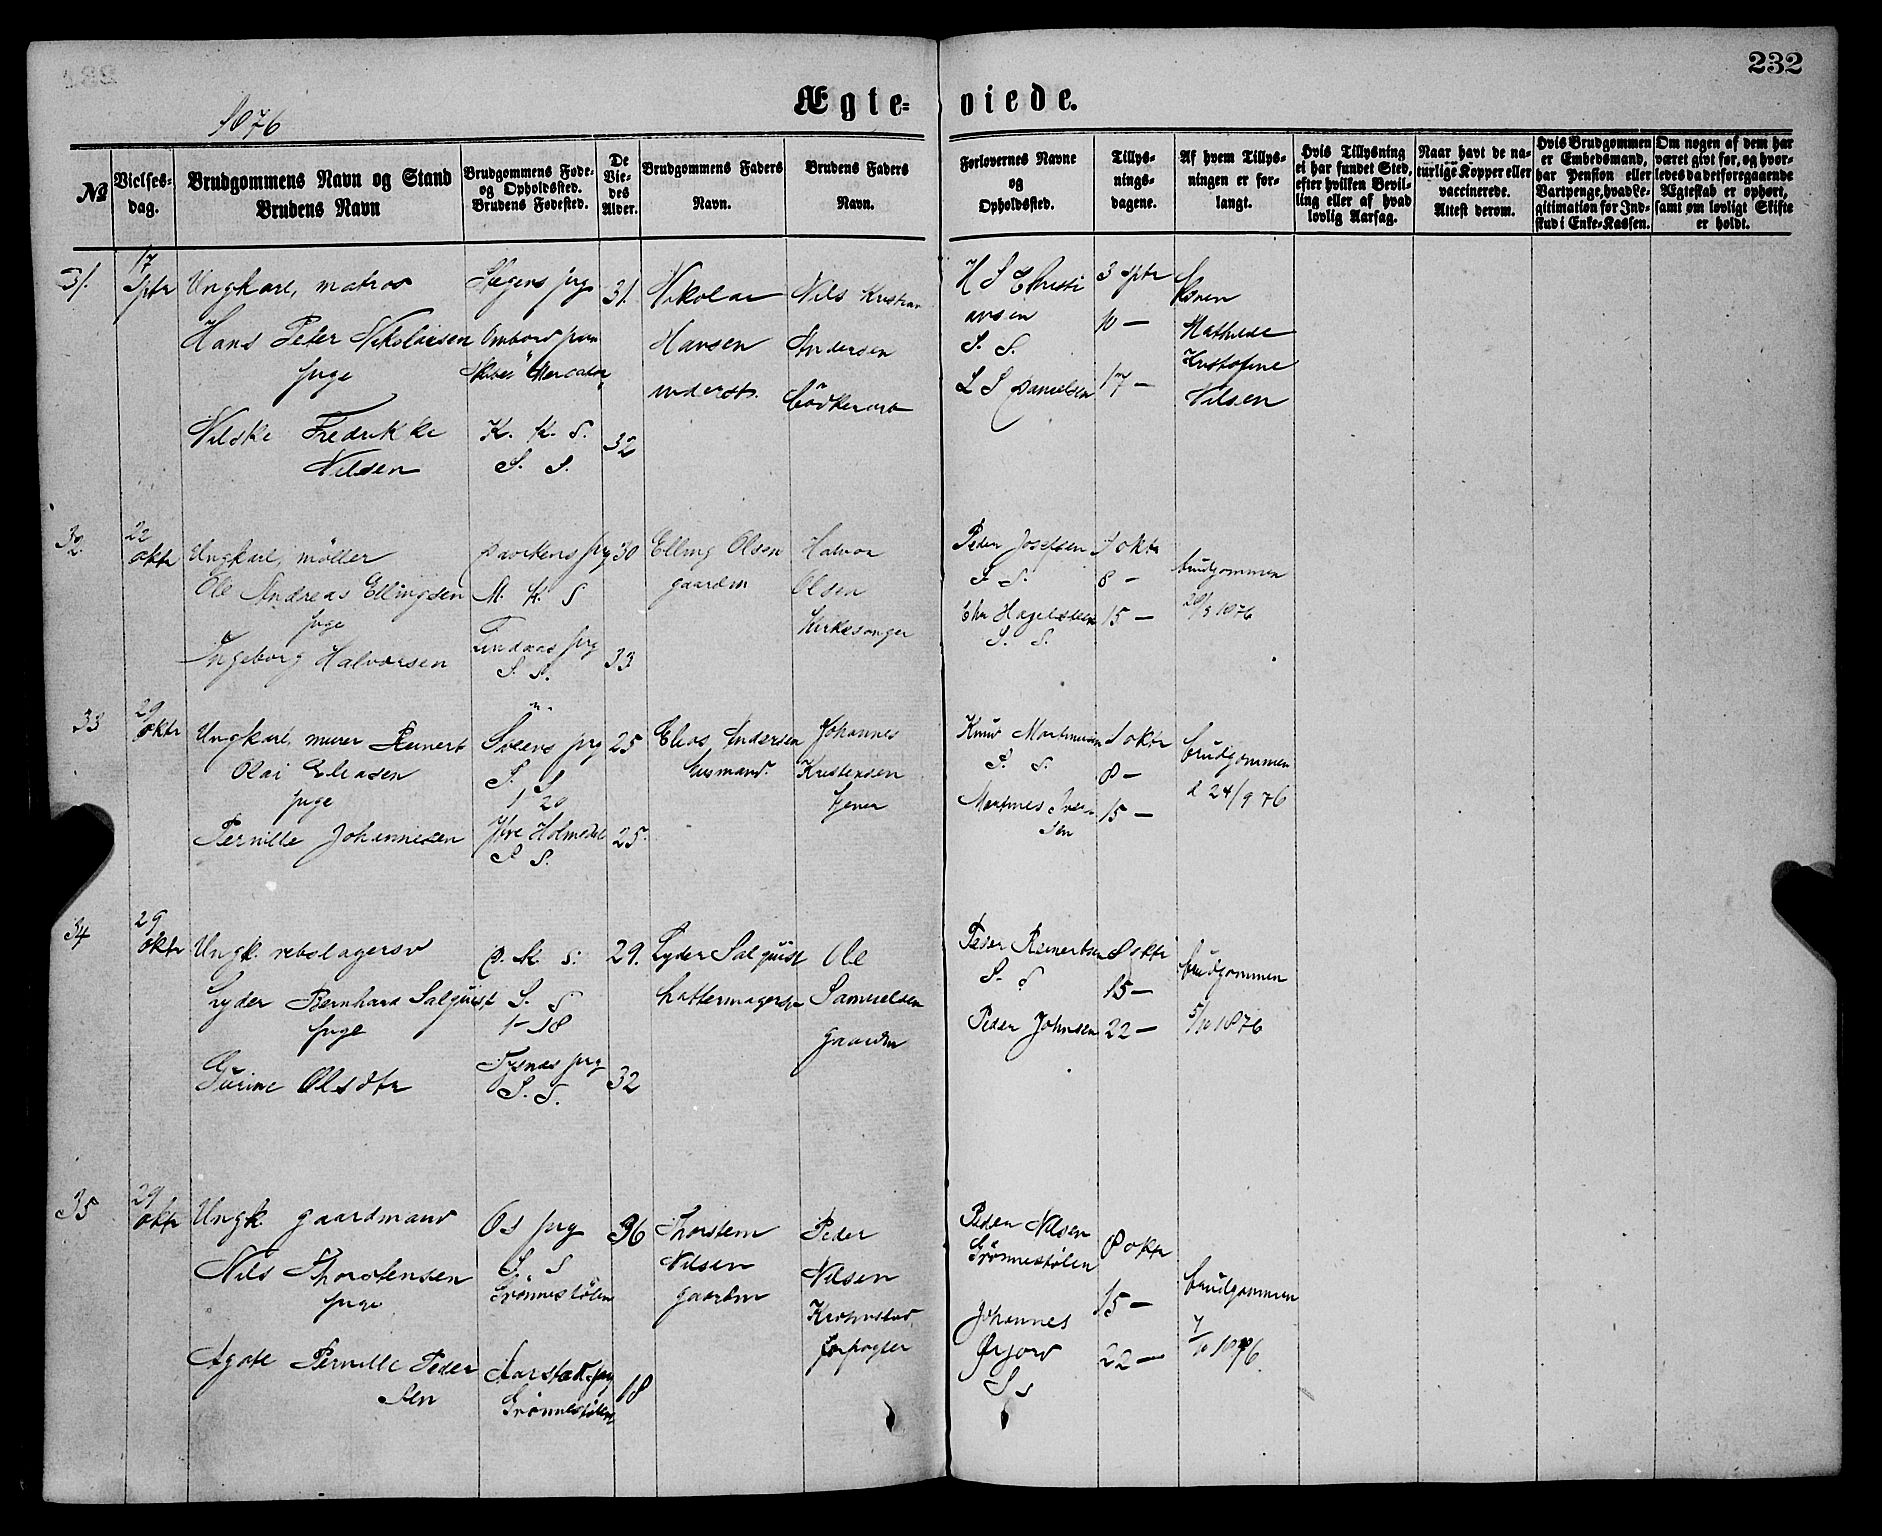 232
Ægte-viede.
1876
No
Vielses-
dag.
Brudgommens Navn og Stand
Brudens Navn
Brudgommens Føde-
og Opholdssted.
Brudens Fødested.
De
Vie-
des
Alder.
Brudgommens Faders
Navn.
Brudens Faders
Navn.
Forlovernes Navne
og
Opholdssted.
Tillys-
nings-
dagene.
Af hvem Tillys-
ningen er for-
langt.
Hvis Tillysning
ei har fundet Sted,
efter hvilken Bevil-
ling eller af hvad
lovlig Aarsag.
Naar havt de na-
turlige Kopper eller
vaccinerede.
Attest derom.
Hvis Brudgommen
er Embedsmand,
har Pension eller
Vartpenge, hvad Le-
gitimation for Ind-
skud i Enke-Kassen.
Om nogen af dem har
været gift før, og hvor-
ledes da det foregaaende
Ægteskab er ophørt,
samt om lovligt Skifte
er holdt.
31.
17
Sptr
Ungkarl, matros
Hans Peter Nikolaisen
pige
Nilske Fredrikke
Nilsen
Ombord paa
K. K. S.
S. S.
31.
32
Nikolai
Hansen
Nils Kristian
Andersen
H S Christi
ansen
S. S.
L S Danielsen
3 sptr
10 —
17 —
Mathilde
Kristofine
Nilsen
32.
22
oktr
Ungkarl, møller
Ole Andreas Ellingsen
pige
Ingeborg Halvorsen
M. K. S
Lindaas prg
S. S.
30
33
Elling Olsen
gaardm
Halvor
Olsen
Kirkesanger
Peder Josefsen
S. S.
Chr Hagelsteen
S. S.
1 oktr
8 —
15 —
brudgommen
20/9 1876
33
29
oktr
Ungkarl, murer Reinert
Olai Eliasen
pige
Pernille Johannesen
Sveens prg
S. S
1-20
Ytre Holmedal
S S.
25
25.
Elias Andersen
husmand.
Johannes
Kristensen
Knud Martinusen
S. S.
Martines Iver-
sen
1 oktr
8 —
15 —
brudgommen
d 24/9 76
34
29
oktr
Ungk. rebslagersv
Lyder Bernhard Salquist
pige
Gurine Olsdtr
D. K. S.
S. S
1-18
Tysnæs prg
S. S.
29.
32
Lyder Salquist
hattemagersv
Ole
Samuelsen
gaardm
Peder Reinertsen
S. S
Peder Johnsen
8 oktr
15 —
22 —
brudgommen
5/10 1876
35
29
oktr
Ungk. gaardmand
Nils Thorstensen
pige
Agate Pernille Peder
sen
Os prg
S. S
Grønnestølen
Aarstad prg
Grønnestølen
36
18
Thorstein
Nilsen
gaardm
Peder
Nilsen
Kronstad,
forpagter
Peder Nilsen
Grønnestølen
Johannes
S s
8 oktr
15 —
22 —
brudgommen
7/10 1876.